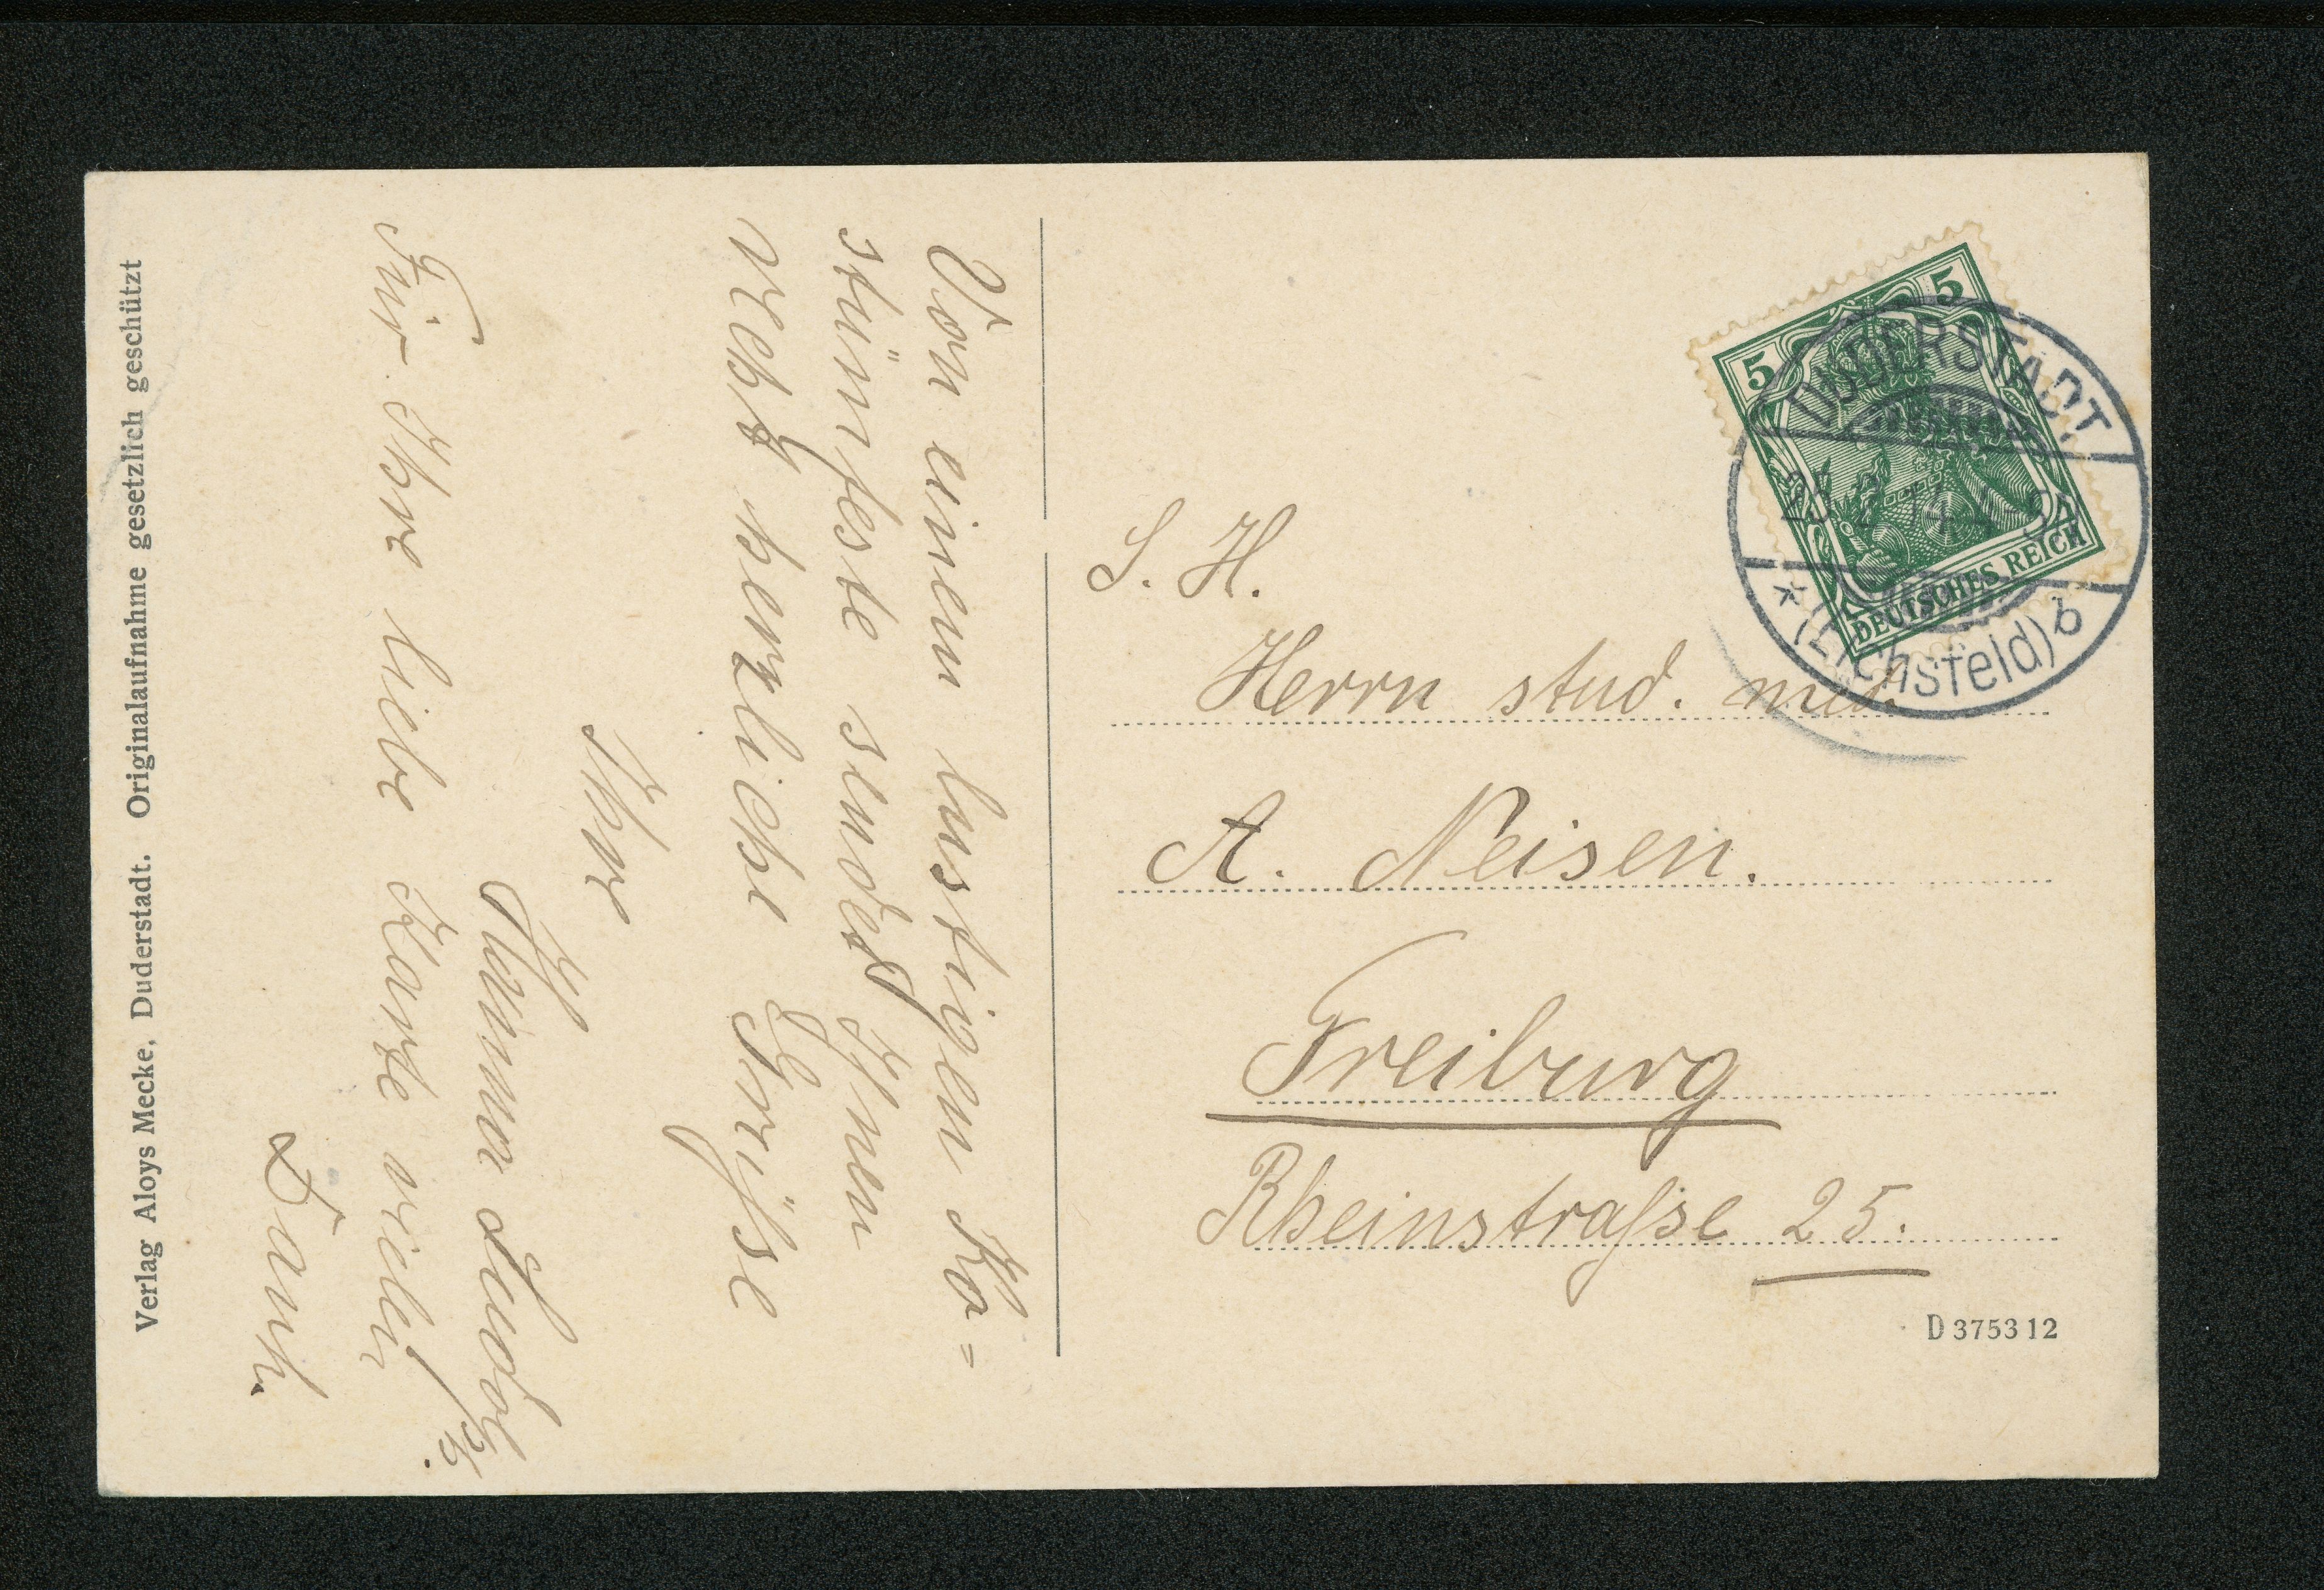 Von einem lustigen Ko=
stümfeste sendet Ihnen
recht herzliche Grüsse
Ihre
Für Ihre liebe Karte vielen
Dank.
S. H.
Herrn stud. med.
A. Neisen.
Freiburg
Rheinstrasse 25.
D 3753 12
5 5
DEUTSCHES REICH
DUDERSTADT
* (Eichsfeld) b
Verlag Aloys Mecke, Duderstadt. Originalaufnahme gesetzlich geschützt